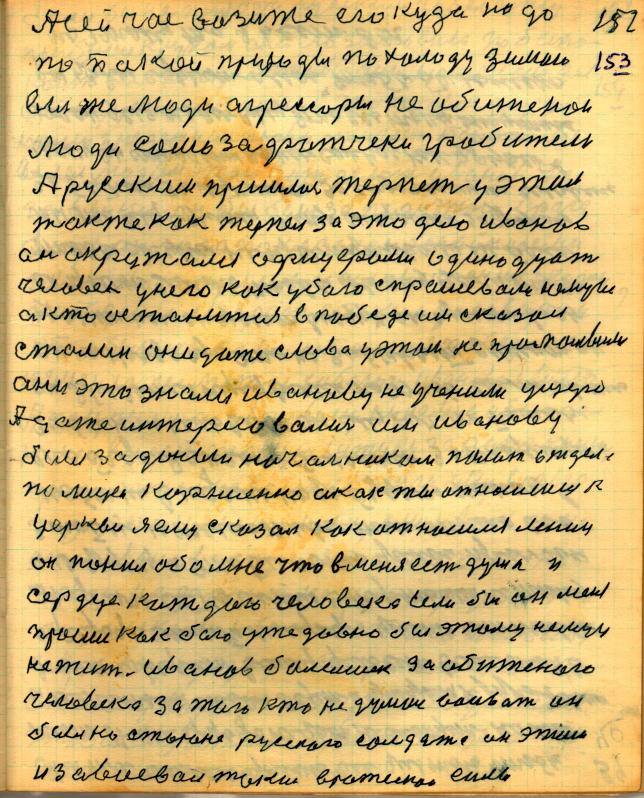 А сейчас возите его куда надо 152
по такой природы по холоду зимою 153
вы же люди агрессоры не обиженои
люди сомо задрытчеки грабители
А русским пришлось терпет у этом
также как терпел за это дело иванов
он окружали офицерами одинодцат
человек у него как у бого спрашевали немцы
а кто останится в победе им сказал
сталин они даже слова у этом не
ани это знали иванову не учинили ущерб
А даже интересовался им иванову
были заданы началником полит отдела
полиции Корниенко а как ты относишся к
церкви я ему сказал как относился ленин
он понил обо мне что в меня ест душа и
сердце каждого человека если бы он меня
просил как бого уже довно был этому немцу
не жит. иванов болелшик за обиженого
человека за того кто не думал воеват он
был на стороне русского солдата он этим
и завоевал таки вражеское силы